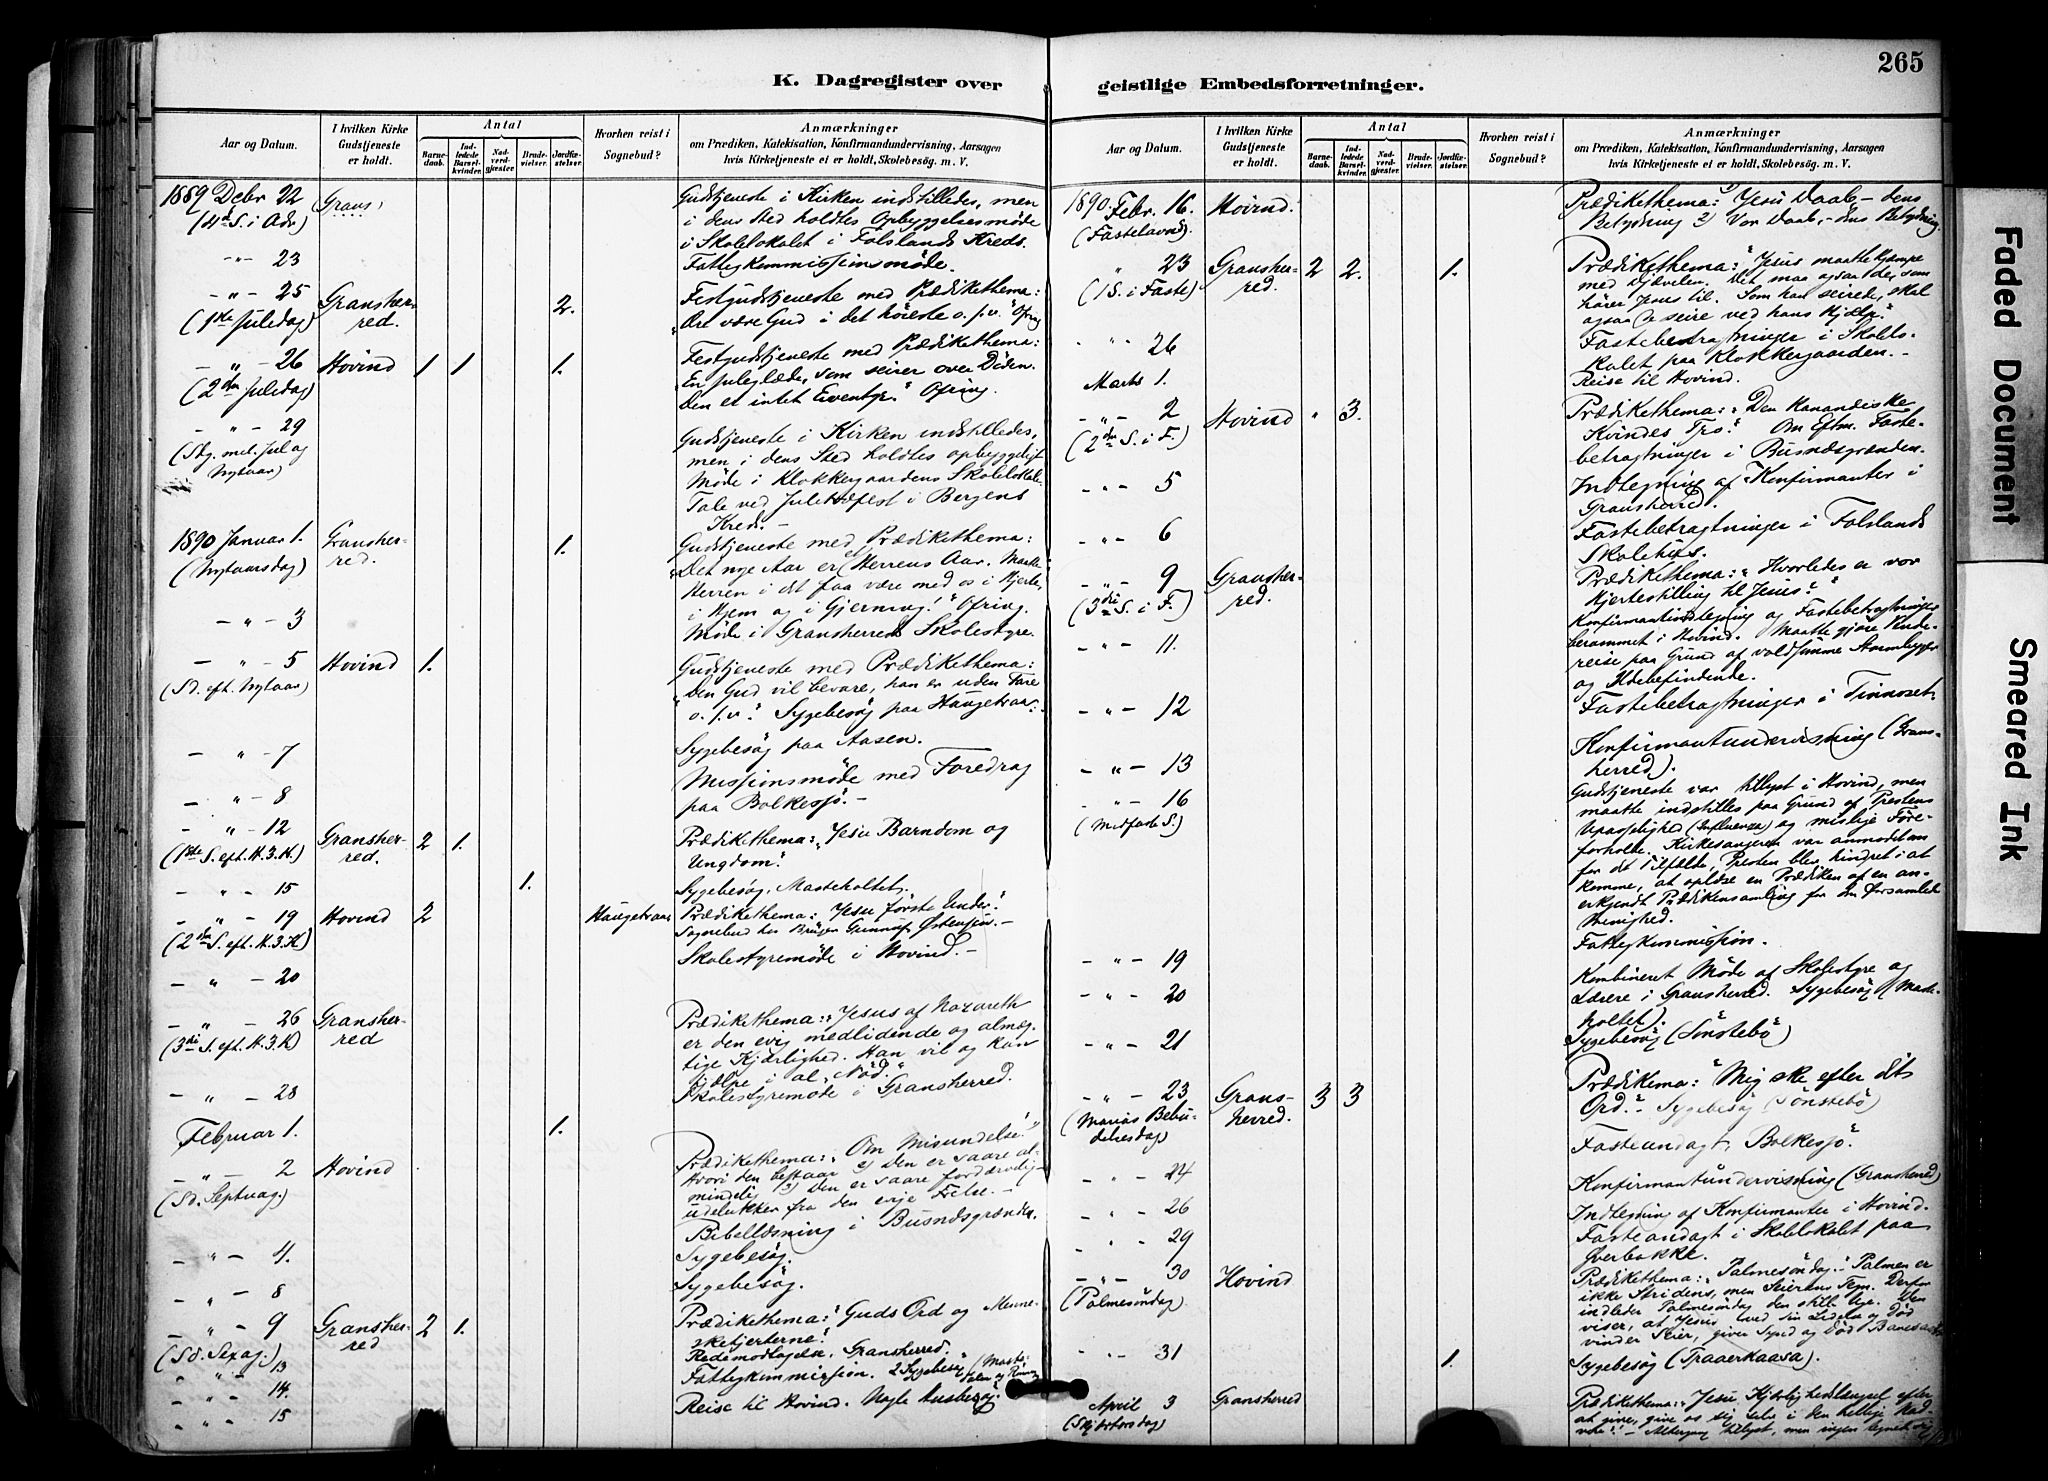 265
K. Dagregister over
geistlige Embedsforretninger.
Aar og Datum.
I hvilken Kirke
Gudstjeneste
er holdt.
Antal
Barne-
daab.
Ind-
ledede
Barsel-
kvinder.
Nad-
verd-
gjæster.
Brude-
vielser.
Jordfæ-
stelser.
Hvorhen reist i
Sognebud?
Anmærkninger
om Prædiken, Katekisation, Konfirmandundervisning, Aarsagen
hvis Kirketjeneste ei er holdt, Skolebesøg. m. V.
1889 Debr 22 Grans:
(4de S. i Adv)
Gudstjeneste i Kirken indstilledes, men
i dens Sted holdtes Opbyggelsesmöde
i Skolelokalet i Folslands Kreds.
-"- 23 Fattigkommissionsmöde.
-"- 25 Gransher- 2.
(1ste Juledag) red.
Festgudstjeneste med Prædikethema:
"Ære være Gud i det höieste o.s.v." Ofring
-"- 26 Hovind 1 1 1.
(2den Juledag)
Festgudstjeneste med Prædikethema:
"En juleglæde, som seirer over Döden.
Den er intet Eventyr." Ofring.
-"- 29
(Sdg. mel. Jul og
Nytaar)
Gudstjeneste i Kirken indstilledes,
men i dens Sted holdtes opbyggeligt
Möde i Klokkergaardens Skolelokale.
Tale ved Juletræfest i Bergens
Kreds.-
1890 Januar 1. Gransher- 1.
(Nytaarsdag) red.
Gudstjeneste med Prædikethema:
"Det nye Aar er et Herrens Aar. Maatte
Herren i det faa være med os i Hjerte,
i Hjem og i Gjerning!" Ofring.
-"- 3 Möde i Gransherreds Skolestyre.
-"- 5 Hovind 1.
(Sd. eft. Nytaar)
Gudstjeneste med Prædikethema:
"Den Gud vil bevare, han er uden Fare
o.s.v." Sygebesög paa Haugetraa-.
-"- 7 Sygebesög paa Aasen.
-"- 8 Missionsmöde med Foredrag
paa Bolkesjö.-
-"- 12 Gransher- 2 1.
(1ste S. eft. H.3.K) red.
Prædikethema: "Jesu Barndom og
Ungdom."
-"- 15 1. Sygebesög, Masteholtet.
-"- 19 Hovind 2 Haugetraa
(2den S. eft. H.3.K)
Prædikethema: "Jesu förste Under."
Sognebud hos Gunnuf Østensjøn.-
-"- 20 Skolestyremöde i Hovind.-
-"- 26 Gransher-
(3die S. eft. H.3.K) red
Prædikethema: "Jesus af Nazareth
er den evig medlidende og almæg-
tige Kjærlighed. Han vil og kan
hjælpe i al Nöd."
-"- 28 Skolestyremöde i Gransherred.
Februar 1. 1.
-"- 2 Hovind
(Sd. Septuag.)
Prædikethema: "Om Misundelse."
Hvori den bestaar 2) Den er saare al-
mindelig 3) Den er saare fordærvelig,
udelukker fra den evje Frelse.-
Bibellæsning i Busnæsgrænden.
-"- 4. Sygebesög.
-"- 8 Sygebesög.
-"- 9 Gransher- 2 1.
(Sd. Sexag.) red
Prædikethema: "Guds Ord og Menne-
skehjerterne."
-"- 13 Redemodtagelse, Gransherred.
-"- 14. Fattigkommission. 2 Sygebesög
-"- 15 Reise til Hovind. Nogle Husbesög.
Aar og Datum.
I hvilken Kirke
Gudstjeneste
er holdt.
Antal
Barne-
daab.
Ind-
ledede
Barsel-
kvinder.
Nad-
verd-
gjæster.
Brude-
vielser.
Jordfæ-
stelser.
Hvorhen reist i
Sognebud?
Anmærkninger
om Prædiken, Katekisation, Konfirmandundervisning, Aarsagen
hvis Kirketjeneste ei er holdt, Skolebesøg. m. V.
1890. Febr. 16. Hovind.
(Fastelavnd).
Prædikethema: "Jesu Daab - dens
Betydning 2) Vor Daab, - dens Betydning.
" 23 Gransher- 2 2. 1.
(1 S. i Faste) red.
Prædikethema: "Jesus maatte kjæmpe
med Djævelen. Det maa ogsaa de, som
hører Jesus til. Som han seirede, skal
ogsaa de seire ved hans Hjælp."
-"- 26 Fastebetragtninger i Skolelo-
kalet paa Klokkergaarden.-
Marts 1. Reise til Hovind.
-"- 2 Hovind " 3.
(2den S. i F.)
Prædikethema: "Den Kananæiske
Kvindes Tro." Om Eftm. Faste-
betragtninger i Busnæsgrænden.
-"- 5 Indtegning af Konfirmanter i
Gransherred.
-"- 6 Fastebetragtninger i Folslands
Skolehus.
-"- 9 Gransher-
(3die S. i F.) red.
Prædikethema: "Hvorledes er vor
Hjertestilling til Jesus?"
-"- 11. Konfirmantindtegning og Fastebetragtninger
berammet i Hovind. Maatte gjöre Vende-
reise paa Grund af voldsomme
og Ildebefindende.
-"- 12 Fastebetragtninger i Tinnoset.
-"- 13 Konfirmantundervisning (Grans-
herred).
-"- 16
(Midfaste S.)
Gudstjeneste var tillyst i Hovind, men
maatte indstilles paa Grund af Prestens
Upasselighed (Influenza) og mislige Före-
forholde. Kirkesangeren var anmodet om
for det Tilfælde, Presten blev hindret i at
komme, at oplæse en Prædiken af en an-
erkjendt Prædikensamling for den forsamlede
Menighed.
-"- 19 Fattigkommission.
-"- 20 Kombineret Möde af Skolestyre og
Lærere i Gransherred. Sygebesög (Maste-
holtet).
-"- 21 Sygebesög (Sönstebö)
-"- 23 Grans- 3 3
(Marias Bebu- herred.
delsesdag)
Prædikema: "Mig ske efter dit
Ord."- Sygebesög (Sönstebö)
Fasteandagt, Bolkesjö.
-"- 24 Konfirmantundervisning (Gransherred)
-"- 26 Indtegning af Konfirmanter i Hovind.
-"- 29 Fasteandagt i Skolelokalet paa
Øverbakke.
-"- 30 Hovind
(Palmesöndag)
Prædikethema: "Palmesöndag.- Palmen er
ikke Stridens, men Seierens Tegn. Derfor
indleder Palmesöndag den stille Uge. Den
viser, at Jesus ved sin Lidelse og Död
vinder Seier, giver Synd og Död Banesaar.
-"- 31 1. Sygebesög (Traaerkaasa).
April 3 Gransherred
(Skjærtorsdag)
Prædikethema: "Jesu Kjærlighedslængsel efter
at give, give os sig selv i den hellige Nad-
verd." - Altergang tillyst, men ingen
Faded Document
Smeared Ink